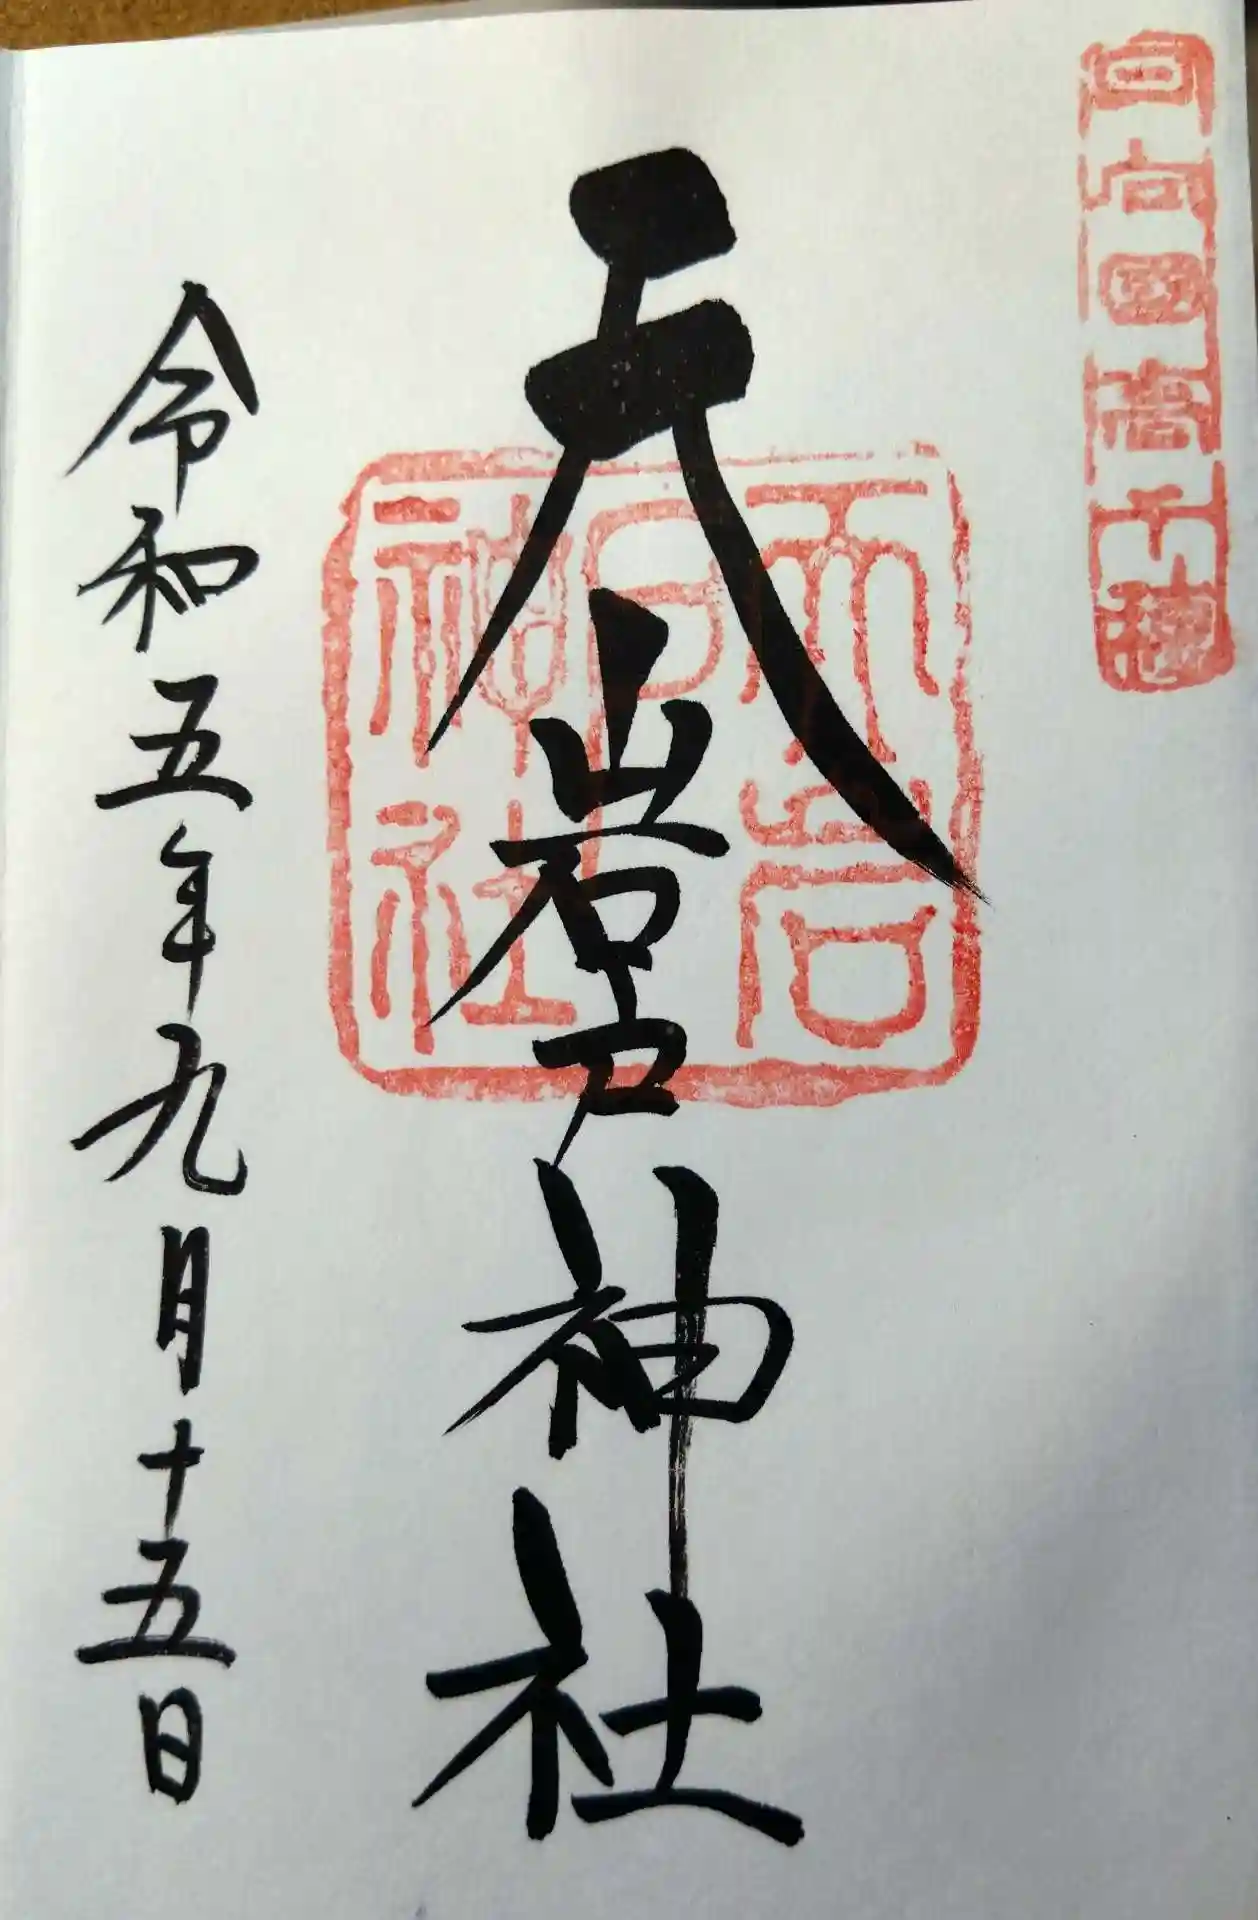 日向國高千穂
天岩戸神社
天岩戸神社
令和五年九月十五日